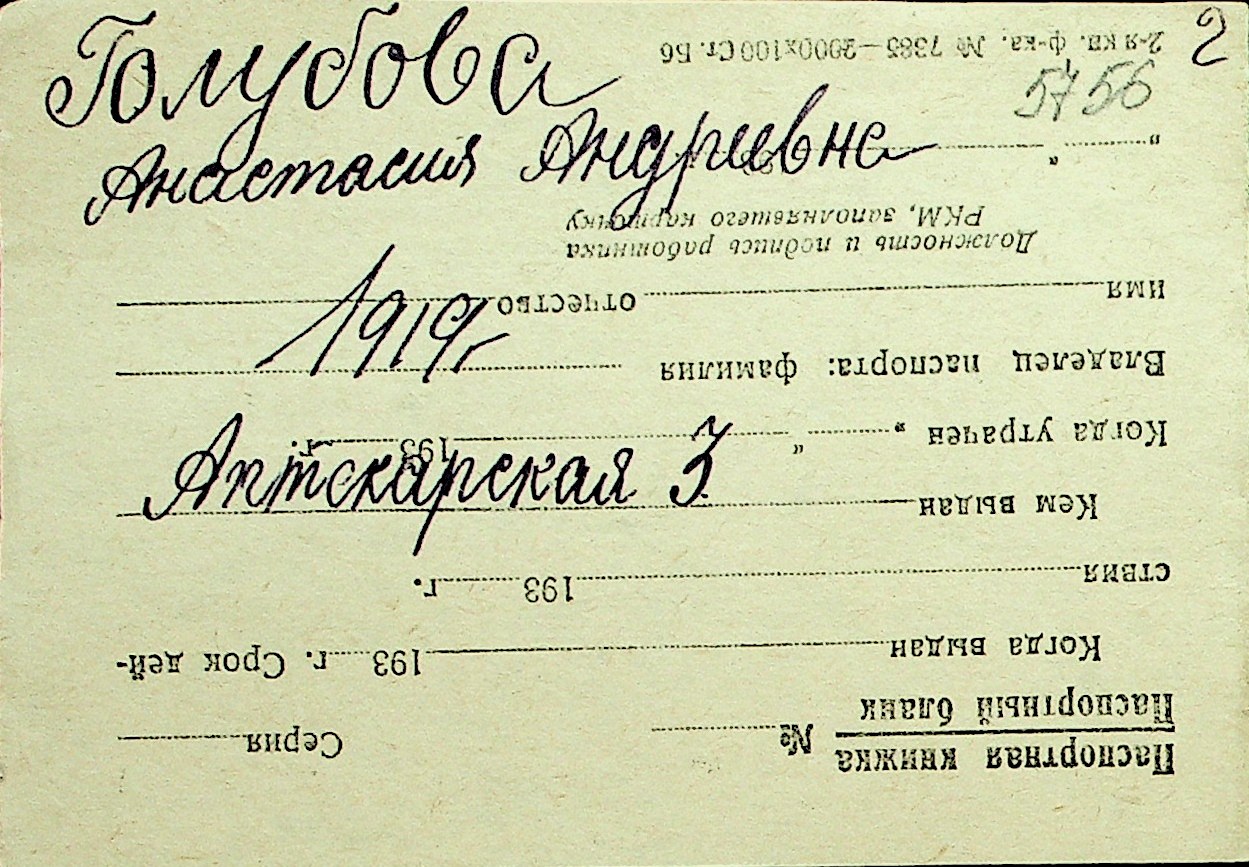 2
Голубова
5756
Анастасия Андриевна
1919г
Аптекарская 3.
Паспортная книжка
Паспортный бланк № Серия
Когда выдан 193 г. Срок дей-
ствия 193 г.
Кем выдан
Когда утрачен „ “ 193 г.
Владелец паспорта: фамилия
имя отчество
Должность и подпись работника
РКМ, заполнявшего карточку
„ “
2-я кв. ф-ка. № 7385—2000х100 Ст. Б6